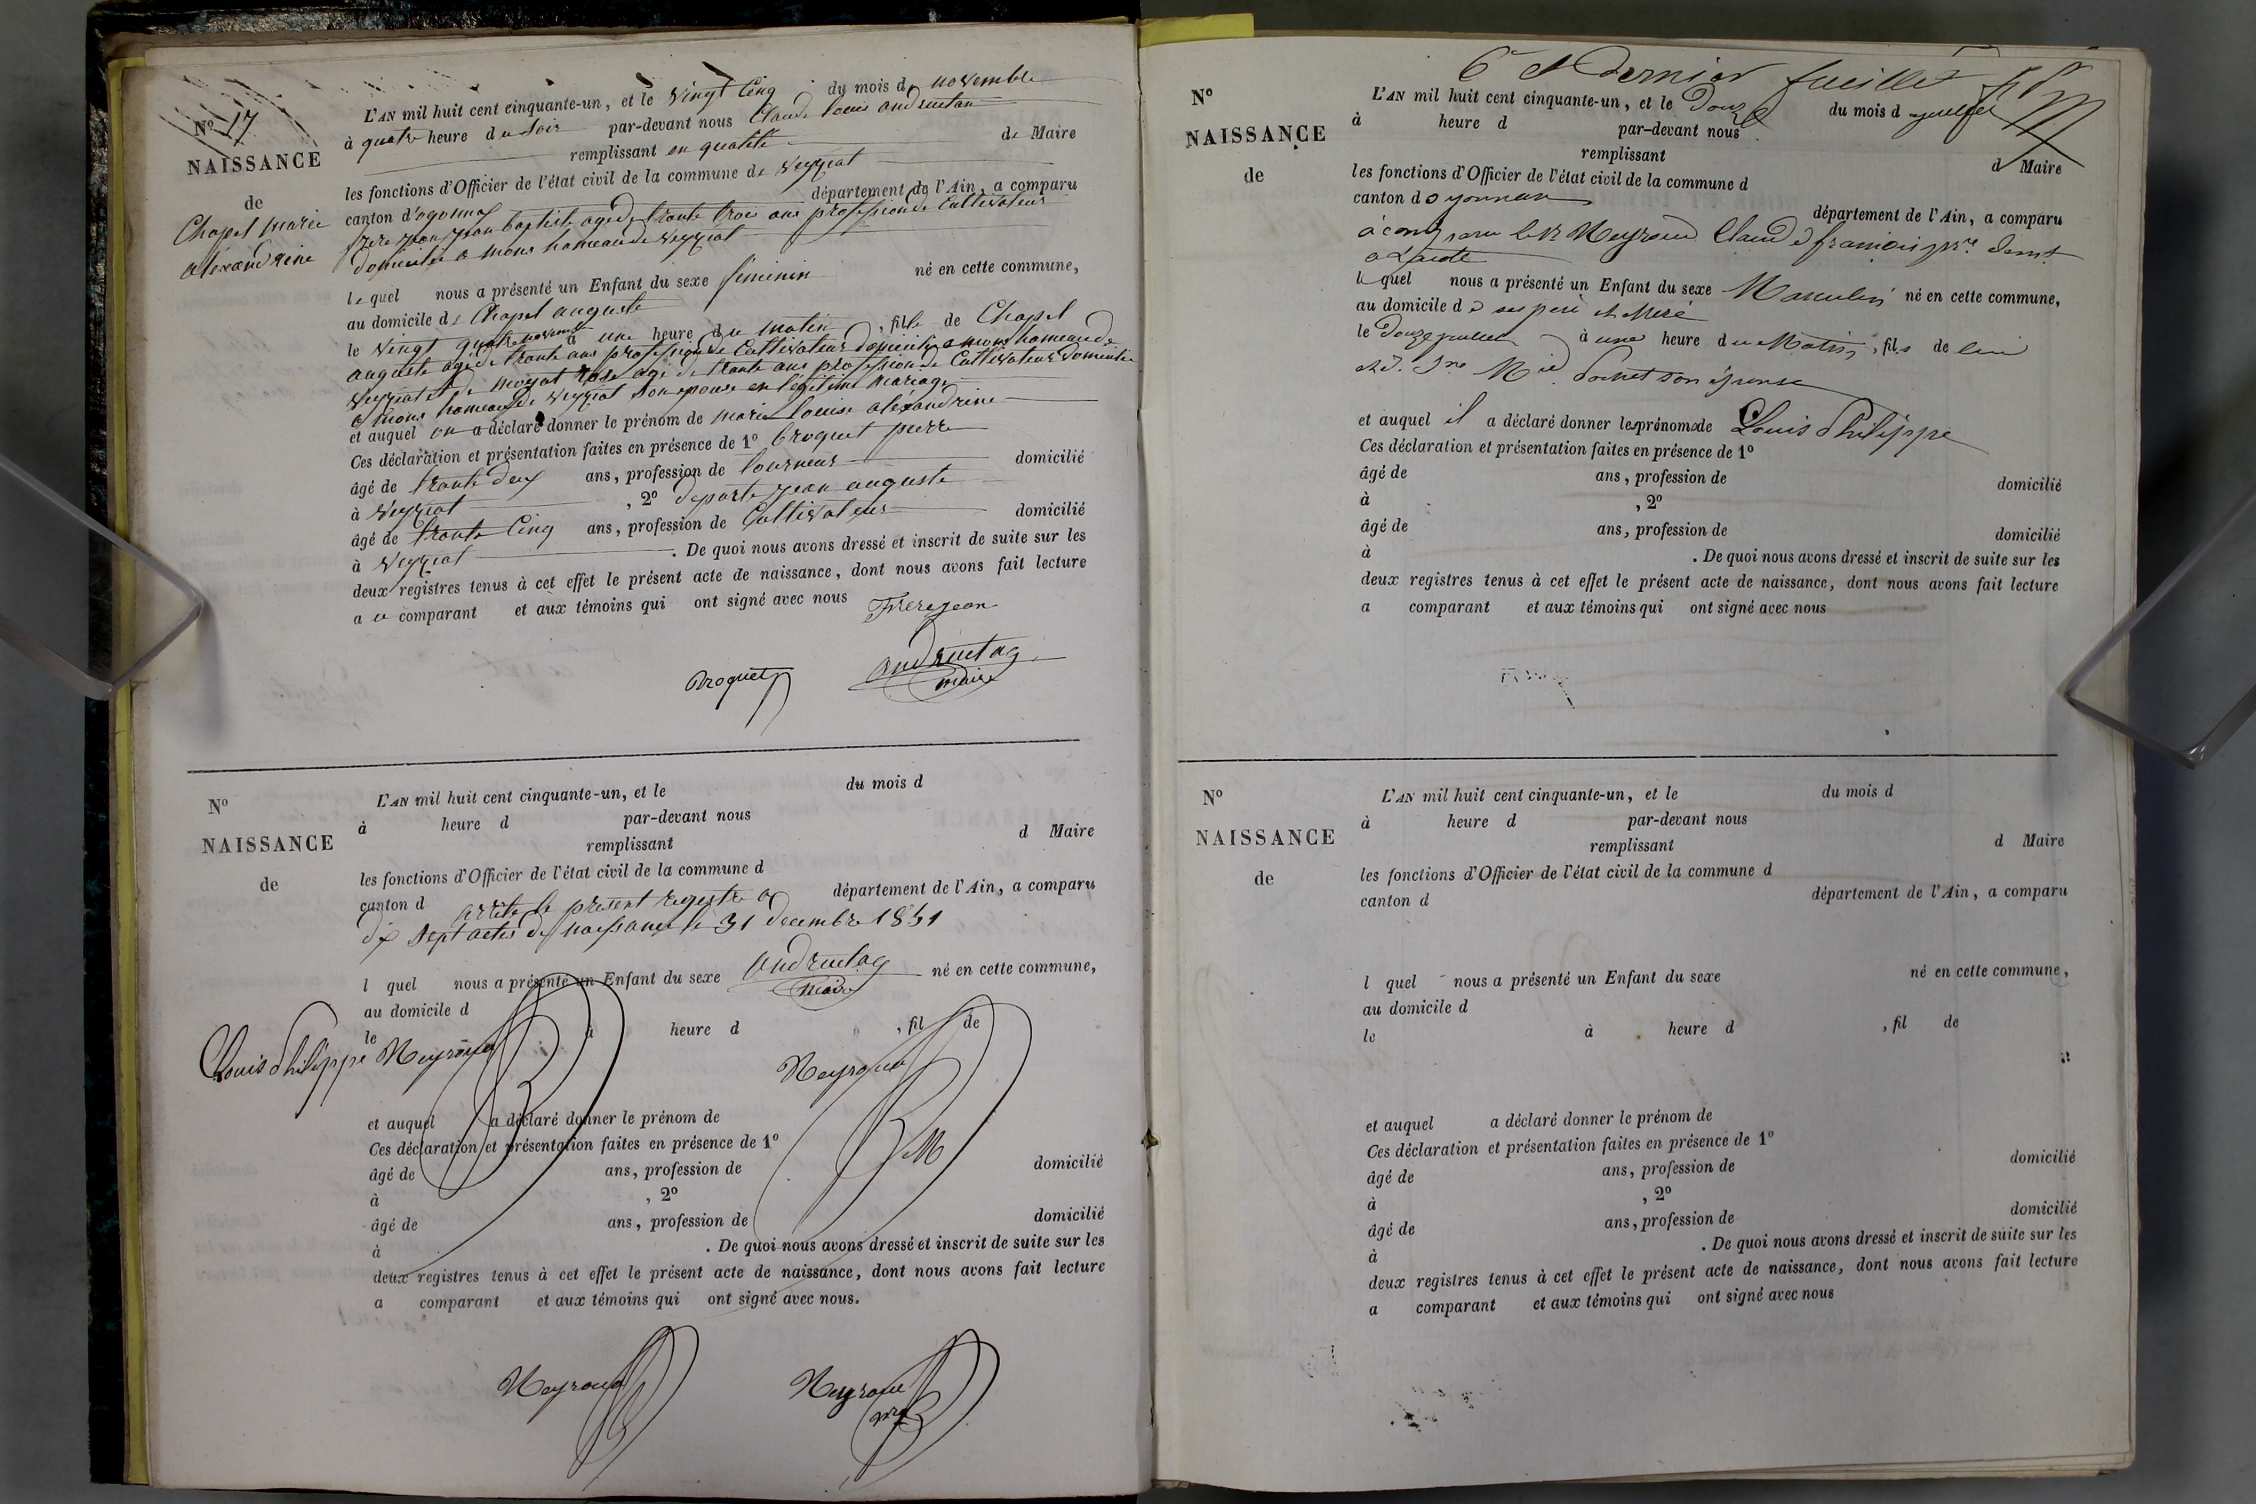 N° 17
NAISSANCE
de
Chapel Marie
alexandrine
L'AN mil huit cent cinquante-un, et le vingt cinq du mois d novembre
à quatre heure du soir par-devant nous Claude Louis andruetan
remplissant en qualité de Maire
les fonctions d'Officier de l'état civil de la commune de Veyziat
canton d'oyonnax département de l'Ain, a comparu
frere jean jean baptiste age de trante trois ans profession de Cultivateur
domicilié a mons hameau de Veyziat
lequel nous a présenté un Enfant du sexe féminin né en cette commune,
au domicile de Chapel auguste
le vingt quatre novembre à une heure du matin, fille de Chapel
auguste age de trante ans profession de Cultivateur domicilie a mons hameau de
Veyziat et de moyat rose age de trante ans profession de Cultivateur domicilie
a mons hameau de Veyziat son epouse en légitime mariage
et auquel on a déclaré donner le prénom de marie louise alexandrine
Ces déclaration et présentation faites en présence de 1° broquet pierre
âgé de trante deux ans, profession de tourneur domicilié
à Veyziat, 2° deporte jean auguste
âgé de trante cinq ans, profession de Cultivateur domicilié
à Veyziat. De quoi nous avons dressé et inscrit de suite sur les
deux registres tenus à cet effet le présent acte de naissance, dont nous avons fait lecture
a u comparant et aux témoins qui ont signé avec nous
Frerejean
Broquet
maire
N°
NAISSANCE
de
L'AN mil huit cent cinquante-un, et le du mois d
à heure d par-devant nous
remplissant d Maire
les fonctions d'Officier de l'état civil de la commune d
canton d département de l'Ain, a comparu
arrête le present registre a
dix sept actes de naissance le 31 decembre 1851
l quel nous a présenté un Enfant du sexe né en cette commune,
maire
au domicile d
le à heure d, fil de
Louis Philippe Neyroud Neyroud
et auquel a déclaré donner le prénom de
Ces déclaration et présentation faites en présence de 1°
âgé de ans, profession de domicilié
à, 2°
âgé de ans, profession de domicilié
à. De quoi nous avons dressé et inscrit de suite sur les
deux registres tenus à cet effet le présent acte de naissance, dont nous avons fait lecture
a comparant et aux témoins qui ont signé avec nous.
Neyroud Neyroud
6e et dernier feuillet
N°
NAISSANCE
de
L'AN mil huit cent cinquante-un, et le douze du mois d juillet
à heure d par-devant nous
remplissant d Maire
les fonctions d'Officier de l'état civil de la commune d
canton d oyonnax département de l'Ain, a comparu
a comparu le sr Neyroud Claude françois
le quel nous a présenté un Enfant du sexe Masculin né en cette commune,
au domicile de ses père et Mère
le douze juillet à une heure du Matin, fils de lui
Mie son épouse
et auquel il a déclaré donner les prénoms de Louis Philippe
Ces déclaration et présentation faites en présence de 1°
âgé de ans, profession de domicilié
à, 2°
âgé de ans, profession de domicilié
à. De quoi nous avons dressé et inscrit de suite sur les
deux registres tenus à cet effet le présent acte de naissance, dont nous avons fait lecture
a comparant et aux témoins qui ont signé avec nous
N°
NAISSANCE
de
L'AN mil huit cent cinquante-un, et le du mois d
à heure d par-devant nous
remplissant d Maire
les fonctions d'Officier de l'état civil de la commune d
canton d département de l'Ain, a comparu
l quel nous a présenté un Enfant du sexe né en cette commune,
au domicile d
le à heure d, fil de
et auquel a déclaré donner le prénom de
Ces déclaration et présentation faites en présence de 1°
âgé de ans, profession de domicilié
à, 2°
âgé de ans, profession de domicilié
à. De quoi nous avons dressé et inscrit de suite sur les
deux registres tenus à cet effet le présent acte de naissance, dont nous avons fait lecture
a comparant et aux témoins qui ont signé avec nous